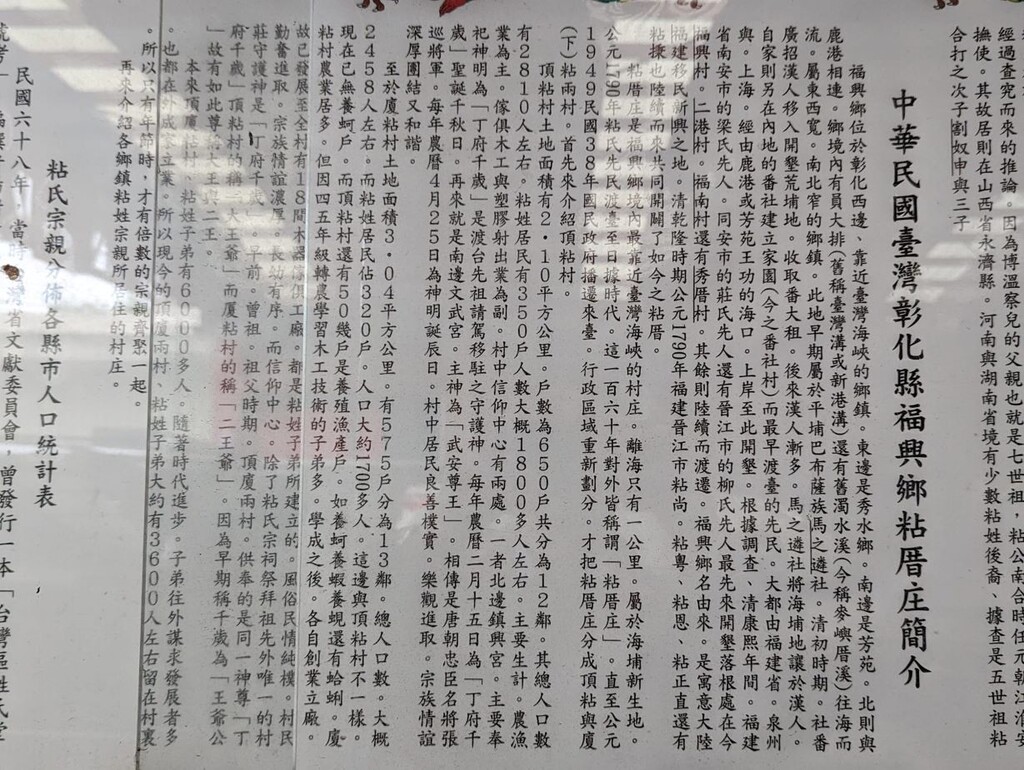 經過查究而來的推論。因為博溫察兒的父親也就是七世祖，粘公南合時任元朝江淮安
撫使。其故居則在山西省永濟縣。河南與湖南省境有少數粘姓後裔、據查是五世祖粘
合打之次子割奴申與三子
中華民國臺灣彰化縣福興鄉粘厝庄簡介
福興鄉位於彰化西邊、靠近臺灣海峽的鄉鎮。東邊是秀水鄉。南邊是芳苑。北則與
鹿港相連。鄉境內有員大排(舊稱臺灣溝或新港溝)還有舊濁水溪(今稱麥嶼厝溪)往海而
流。屬東西寬。南北窄的鄉鎮。此地早期屬於平埔巴布薩族馬之遴社。清初時期。社番
廣招漢人移入開墾荒埔地。收取番大租。後來漢人漸多。馬之遴社將海埔地讓於漢人。
自家則另在內地的番社建立家園(今之番社村)而最早渡臺的先民。大都由福建省。泉州
與。上海。經由鹿港或芳苑王功的海口。上岸至此開墾。根據調查、清康熙年間。福建
省南安市的梁氏先人。同安市的莊氏先人還有晉江市的柳氏先人最先來開墾落根處在今
福興村。二港村。福南村還有秀厝村。其餘則陸續而渡遷。福興鄉名由來。是寓意大陸
福建移民新興之地。清乾隆時期公元1790年福建晉江市粘尚。粘粵、粘恩、粘正直還有
粘拺也陸續而來共同開闢了如今之粘厝。
粘厝庄是福興鄉境內最靠近臺灣海峽的村庄。離海只有一公里。屬於海埔新生地。
公元1790年粘氏先祖渡臺至日據時代。這一百六十年對外皆稱謂「粘厝庄」。直至公元
1949民國38年國民政府播遷來臺。行政區域重新劃分。才把粘厝庄分成頂粘與廈
(下)粘兩村。首先來介紹頂粘村。
頂粘村土地面積有2．10平方公里。戶數為650戶共分為12鄰。其總人口數
有2810人左右。粘姓居民有350戶人數大概1800多人左右。主要生計。農漁
業為主。傢俱木工與塑膠射出業為副。村中信仰中心有兩處。一者北邊鎮興宮。主要奉
祀神明為「丁府千歲」是渡台先祖請駕移駐之守護神。每年農曆二月十五日為「丁府千
歲」聖誕千秋日。再來就是南邊文武宮。主神為「武安尊王」。相傳是唐朝忠臣名將張
巡將軍。每年農曆4月25日為神明誕辰日。村中居民良善樸實。樂觀進取。宗族情誼
深厚團結又和諧。
至於廈粘村土地面積3．04平方公里。有575戶分為13鄰。總人口數。大概
2458人左右。而粘姓居民佔320戶。人口大約1700多人。這邊與頂粘村不一樣。
現在已無養蚵戶。而頂粘村還有50幾戶是養殖漁產戶。如養蚵養蝦養蜆還有蛤蜊。廈
粘村農業居多。但因四五年級轉農學習木工技術的子弟多。學成之後。各自創業立廠。
故已發展至全村有18間木器傢俱工廠。都是粘姓子弟所建立的。風俗民情純樸。村民
勤奮進取。宗族情誼濃厚。長幼有序。而信仰中心。除了粘氏宗祠祭拜祖先外唯一的村
莊守護神是「丁府千歲」。早前。曾祖。祖父時期。頂廈兩村。供奉的是同一神尊「丁
府千歲」頂粘村的稱「大王爺」而廈粘村的稱「二王爺」。因為早期稱千歲為「王爺公
」故有如此尊稱大王與二王。
本來頂廈粘村、粘姓子弟有6000多人。隨著時代進步。子弟往外謀求發展者多
。也都在外成家立業。所以現今的頂廈兩村、粘姓子弟大約有3600人左右留在村裏
。所以只有年節時，才有倍數的宗親齊聚一起。
再來介紹各鄉鎮粘姓宗親所居住的村庄。
粘氏宗親分佈各縣市人口統計表
民國六十八年，當時台灣省文獻委員會，曾發行一本「台灣區姓氏堂